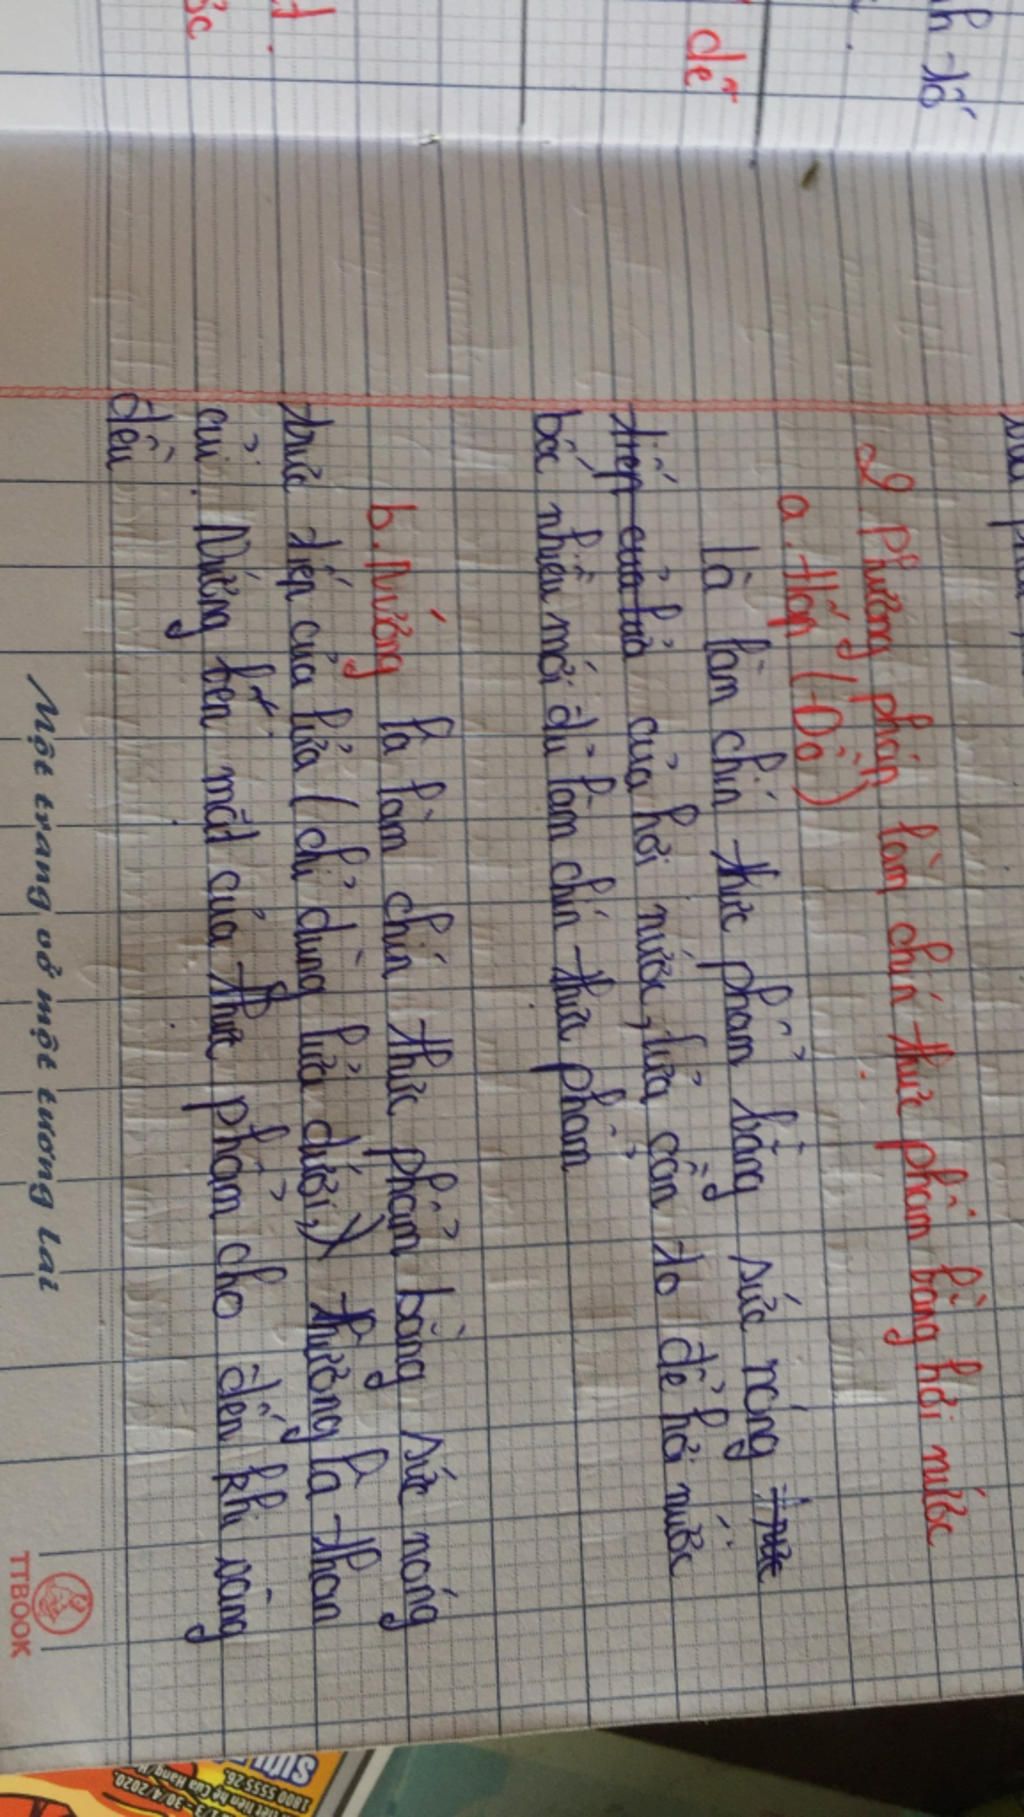 h tố
dễ
2 Phương pháp làm chín thực phẩm bằng hơi nước
a. Hấp (Đồ)
Là làm chín thực phẩm bằng sức nóng trực
tiếp của lửa của hơi nước, lửa cần to để hơi nước
bốc nhiều mới đủ làm chín thực phẩm
b. Nướng là làm chín thực phẩm bằng sức nóng
trực tiếp của lửa (chỉ dùng lửa dưới,) thường là than
củi. Nướng bên mặt của thực phẩm cho đến khi vàng
đều
Một trang vở một tương lai
TTBOOK
1800 5555 26.
tiết liên hệ Cửa Hàng
1/3 - 30/4/2020.